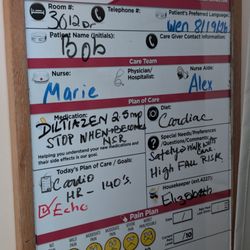 Room #:
3012
Telephone #:
Patient's Preferred Language:
Wen 8/19/26
Patient Name (Initials):
Bob
Care Giver Contact Information:
Care Team
Nurse:
Marie
Physician/
Hospitalist:
Nurse Aide:
Alex
Plan of Care
Medication:
DILTIAZEN
STOP WHEN
NSR
Helping you understand your new medications and
their side effects is our goal.
Diet:
Cardiac
Special Needs/Preferences
Questions/Comments:
Safety
HIGH FALL RISK
Today's Plan of Care / Goals:
Cardio
HR - 140's.
Echo
Housekeeper (ext.4227):
Elizabeth
Pain Plan